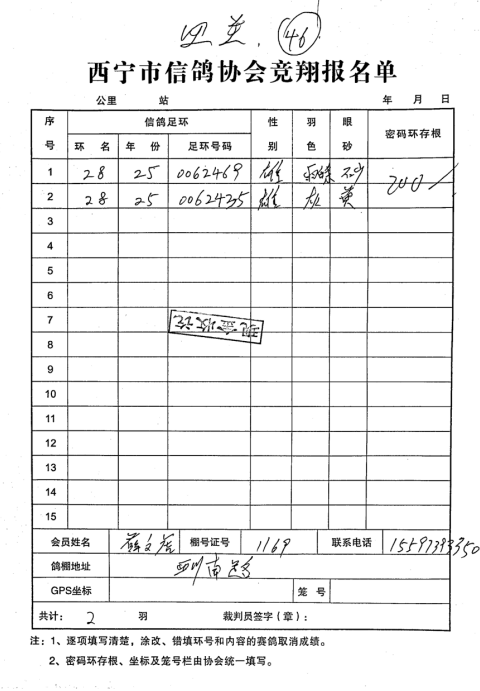 46
西宁市信鸽协会竞翔报名单
公里 站 年 月 日
序号 信鸽足环 性别 羽色 眼砂 密码环存根
环名 年份 足环号码
1 28 25 0062469 雄 砂 200/
2 28 25 0062435 雄 灰 黄
3
4
5
6
7
现金收讫
8
9
10
11
12
13
14
15
会员姓名 文 棚号证号 1169 联系电话 15597393350
鸽棚地址 四川南路
GPS坐标 笼号
共计: 2 羽 裁判员签字(章):
注:1、逐项填写清楚,涂改、错填环号和内容的赛鸽取消成绩。
2、密码环存根、坐标及笼号栏由协会统一填写。